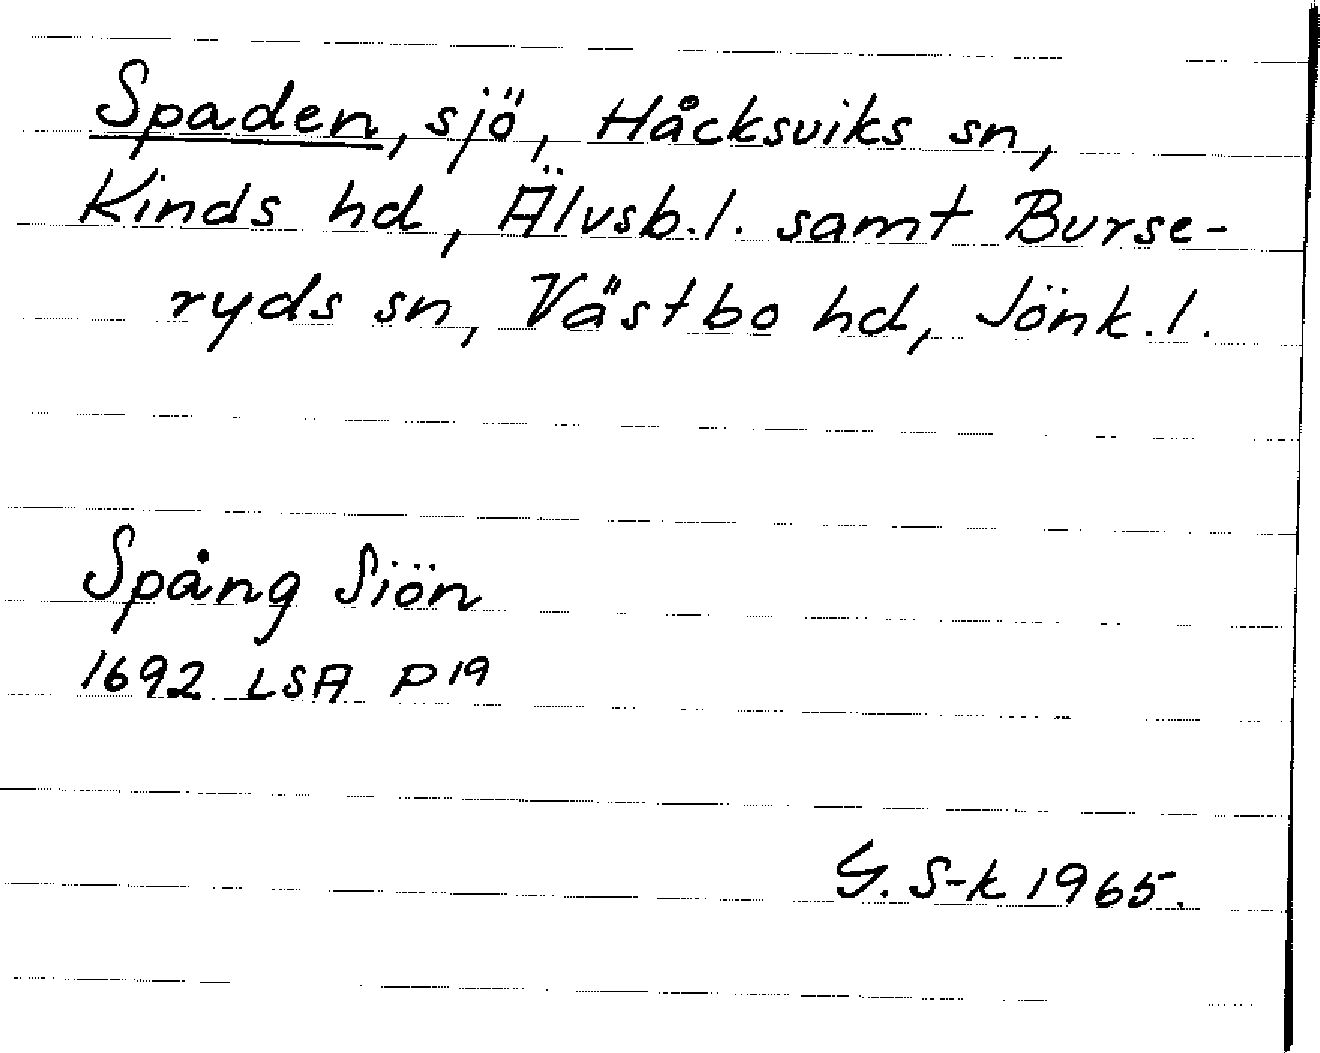 Spaden, sjö, Håcksviks sn,
Kinds hd, Älvsb.l. samt Burse-
ryds sn, Västbo hd, Jönk.l.
Spång Siön
1692 LSA P19
G. S-k 1965.